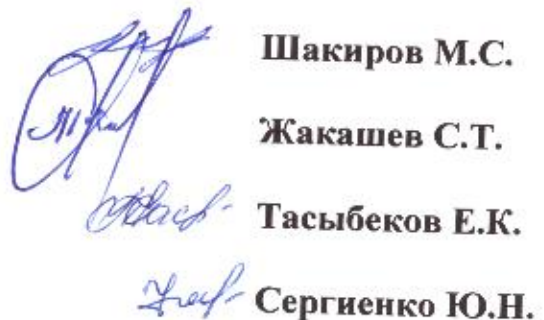 Шакиров М.С.
Жакашев С.Т.
Тасыбеков Е.К.
Сергиенко Ю.Н.